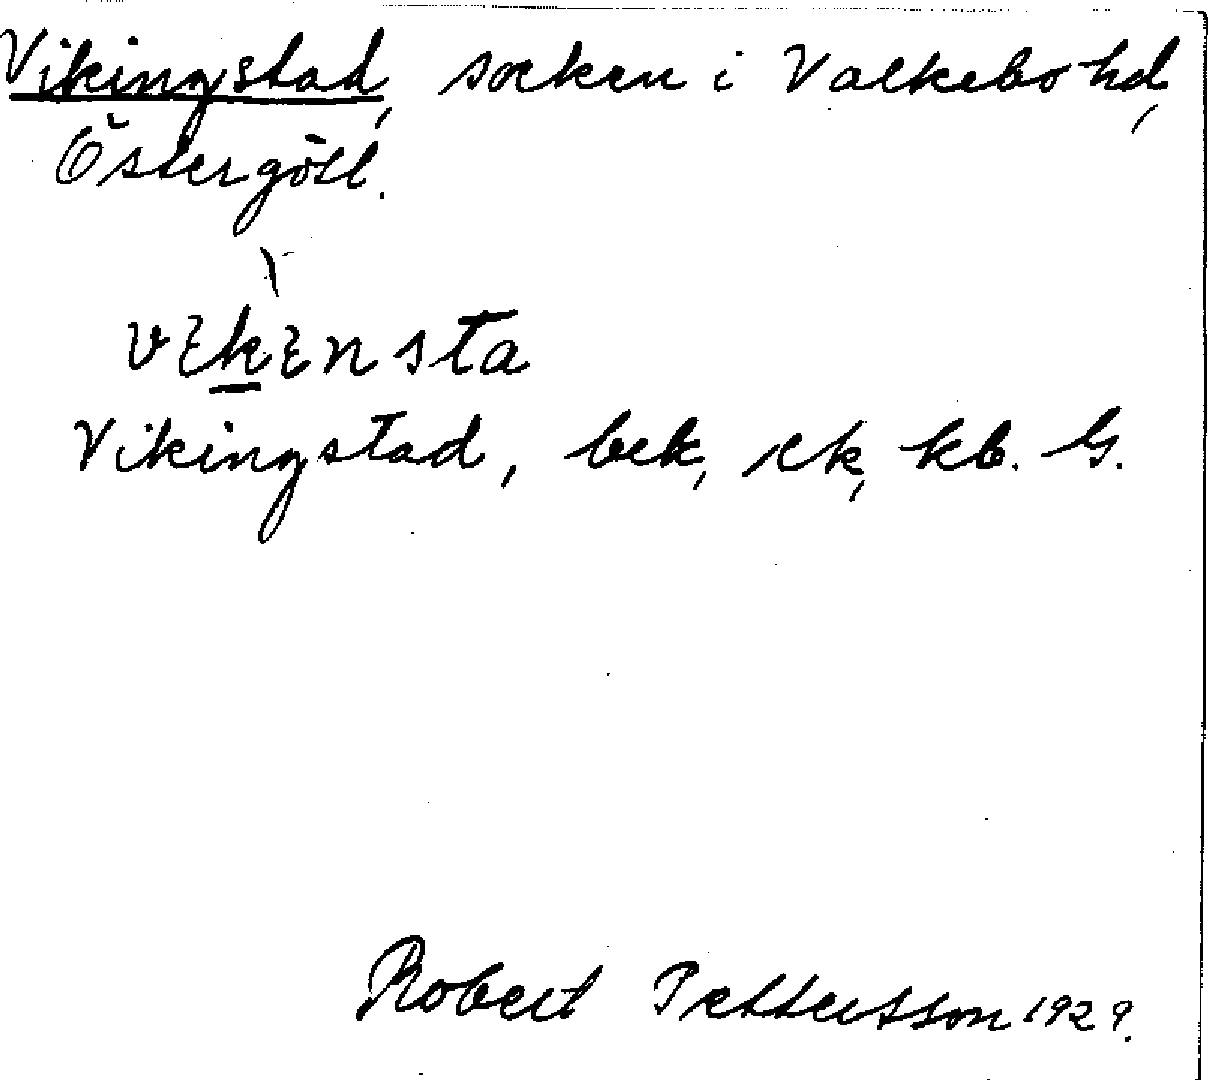 Vikingstad, socken i Valkebo hd,
Östergötl.
vɛkɛnsta
Vikingstad, bek, sk, kb. G.
Robert Pettersson 1929.